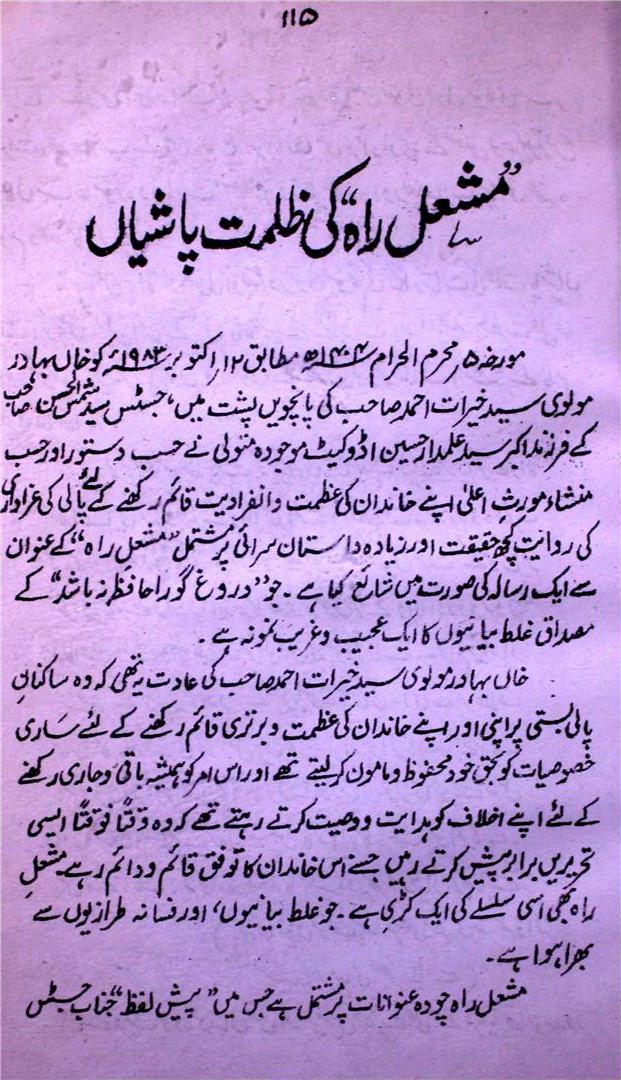 ۱۱۵
”مشعل راہ“ کی ظلمت پاشیاں
مورخہ ۵ محرم الحرام ۱۴۰۴ھ مطابق ۱۲ اکتوبر ۱۹۸۳ء کو خاں بہادر
مولوی سید خیرات احمد صاحب کی پانچویں پشت میں، جسٹس سید شمس الحسن صاحب
کے فرزند اکبر سید علمدار حسین اڈوکیٹ موجودہ متولی نے حسب دستور اور حسب
منشاء مورث اعلیٰ اپنے خاندان کی عظمت و انفرادیت قائم رکھنے کے لئے پالی کی عزاداری
کی روایت کچھ حقیقت اور زیادہ داستان سرائی پر مشتمل ”مشعل راہ“ کے عنوان
سے ایک رسالہ کی صورت میں شائع کیا ہے۔ جو ”دروغ گورا حافظہ نہ باشد“ کے
مصداق غلط بیانیوں کا ایک عجیب و غریب نمونہ ہے۔
خاں بہادر مولوی سید خیرات احمد صاحب کی عادت یہ تھی کہ وہ ساکنان
پالی بستی پر اپنی اور اپنے خاندان کی عظمت و برتری قائم رکھنے کے لئے ساری
خصوصیات کو بحق خود محفوظ و مامون کر لیتے تھے اور اس امر کو ہمیشہ باقی و جاری رکھنے
کے لئے اپنے اخلاف کو ہدایت و وصیت کرتے رہتے تھے کہ وہ وقتاً فوقتاً ایسی
تحریریں برابر پیش کرتے رہیں جسنے اس خاندان کا توفق قائم و دائم رہے۔ مشعل
راہ بھی اسی سلسلے کی ایک کڑی ہے۔ جو غلط بیانیوں، اور فسانہ طرازیوں سے
بھرا ہوا ہے۔
مشعل راہ چودہ عنوانات پر مشتمل ہے جس میں ”پیش لفظ“ جناب جسٹس